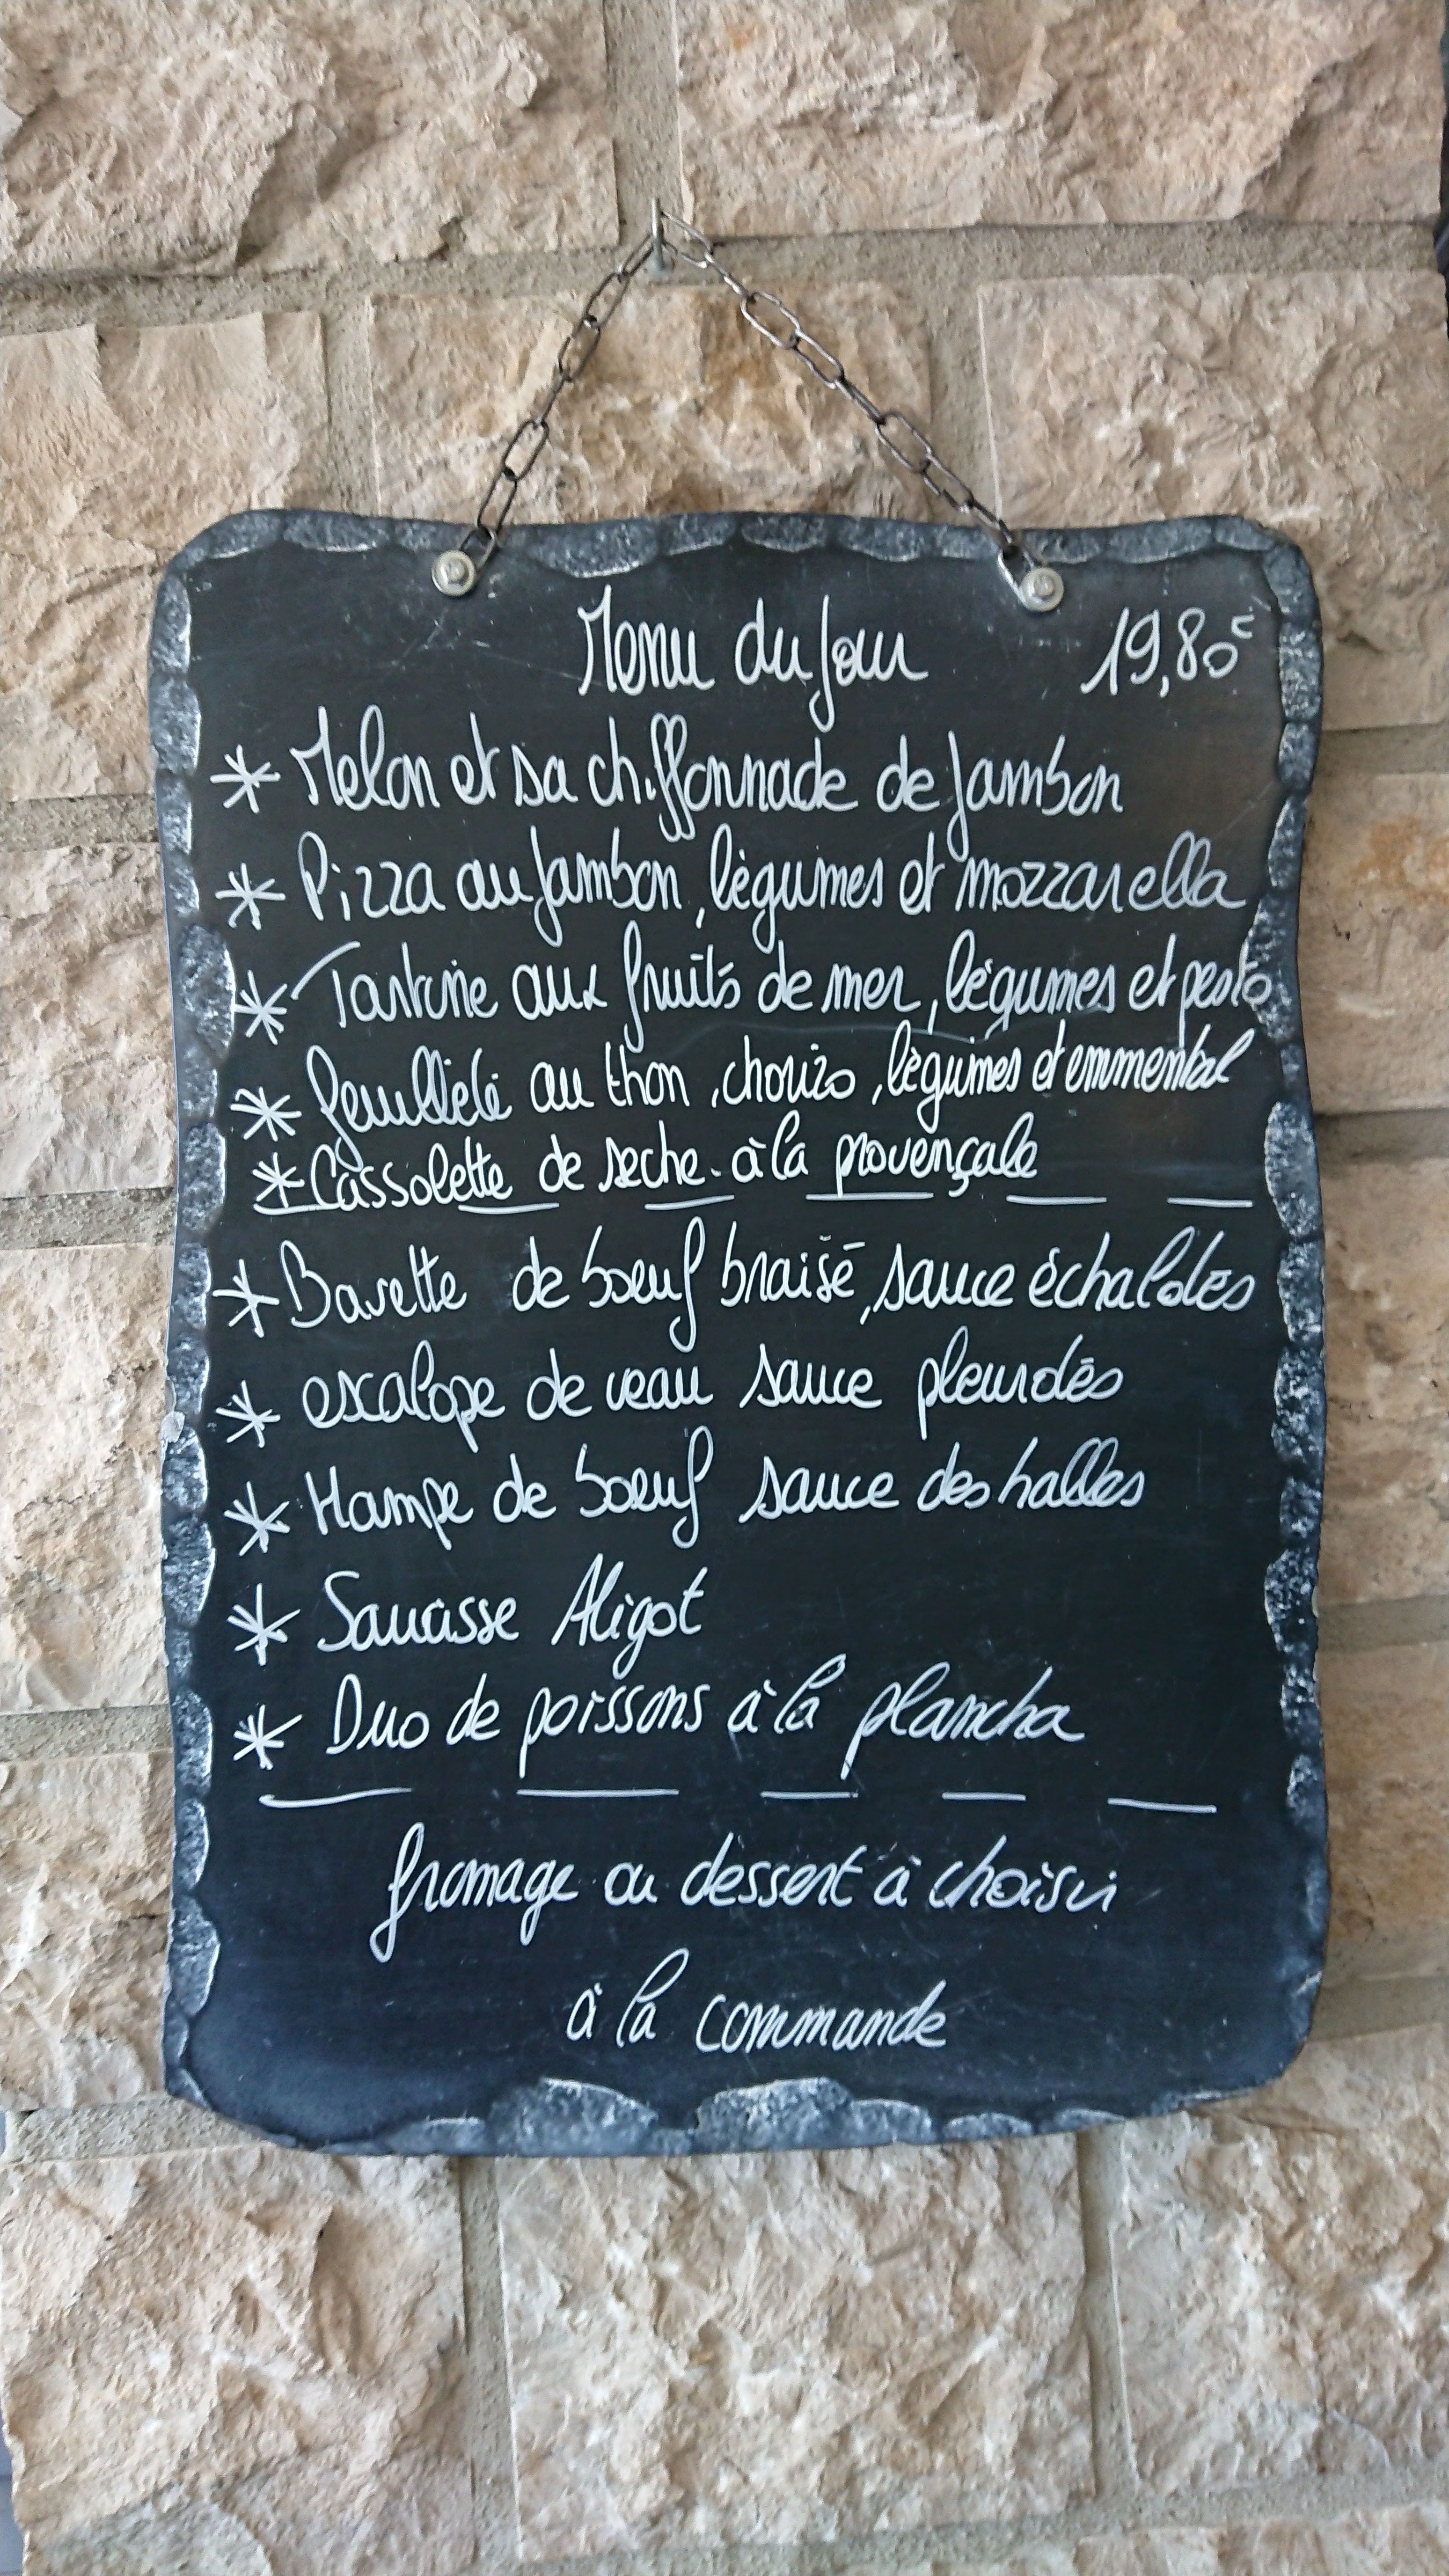 Menu du Jour 19,80€
* Melon et sa chiffonnade de Jambon
* Pizza au Jambon, légumes et mozzarella
* Tartine aux fruits de mer, légumes et pesto
* feuilleté au thon, chorizo, légumes et emmental
* Cassolette de seche à la provençale
* Bavette de boeuf braisé, sauce échalotes
* escalope de veau sauce pleurotes
* Hampe de boeuf sauce des halles
* Saucisse Aligot
* Duo de poissons à la plancha
fromage ou dessert à choisir
à la commande